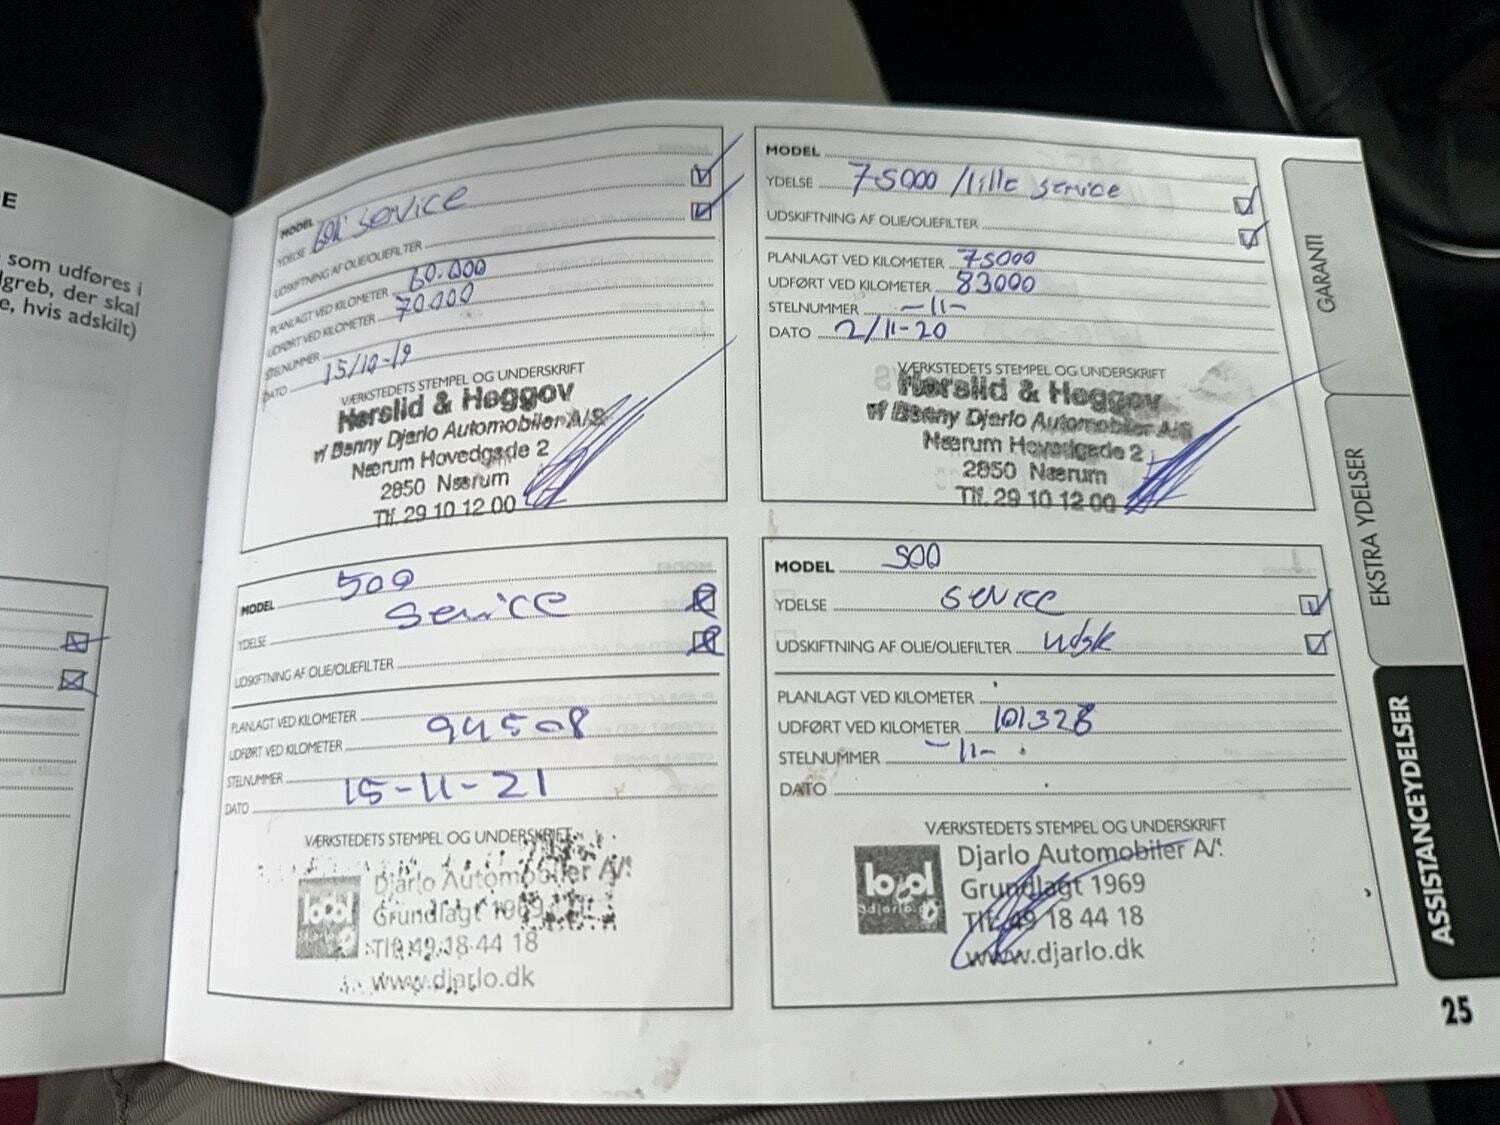 E
som udføres i
dgreb, der skal
e, hvis adskilt)
MODEL
YDELSE 60k service
UDSKIFTNING AF OLIE/OLIEFILTER
PLANLAGT VED KILOMETER 60.000
UDFØRT VED KILOMETER 70.000
STELNUMMER
DATO 15/10-19
VÆRKSTEDETS STEMPEL OG UNDERSKRIFT
Nørslid & Heggov
v/ Benny Djarlo Automobiler A/S
Nærum Hovedgade 2
2850 Nærum
Tlf. 29 10 12 00
MODEL
YDELSE 75000 / lille service
UDSKIFTNING AF OLIE/OLIEFILTER
PLANLAGT VED KILOMETER 75000
UDFØRT VED KILOMETER 83000
STELNUMMER -11-
DATO 2/11-20
VÆRKSTEDETS STEMPEL OG UNDERSKRIFT
Nørslid & Heggov
v/ Benny Djarlo Automobiler A/S
Nærum Hovedgade 2
2850 Nærum
Tlf. 29 10 12 00
MODEL 500
YDELSE Service
UDSKIFTNING AF OLIE/OLIEFILTER
PLANLAGT VED KILOMETER
UDFØRT VED KILOMETER 94508
STELNUMMER
DATO 15-11-21
VÆRKSTEDETS STEMPEL OG UNDERSKRIFT
Djarlo Automobiler A/S
Grundlagt 1969
Tlf. 49 18 44 18
www.djarlo.dk
MODEL 500
YDELSE Service
UDSKIFTNING AF OLIE/OLIEFILTER Udsk
PLANLAGT VED KILOMETER
UDFØRT VED KILOMETER 101328
STELNUMMER -11-
DATO
VÆRKSTEDETS STEMPEL OG UNDERSKRIFT
Djarlo Automobiler A/S
Grundlagt 1969
Tlf. 49 18 44 18
www.djarlo.dk
GARANTI
EKSTRA YDELSER
ASSISTANCEYDELSER
25